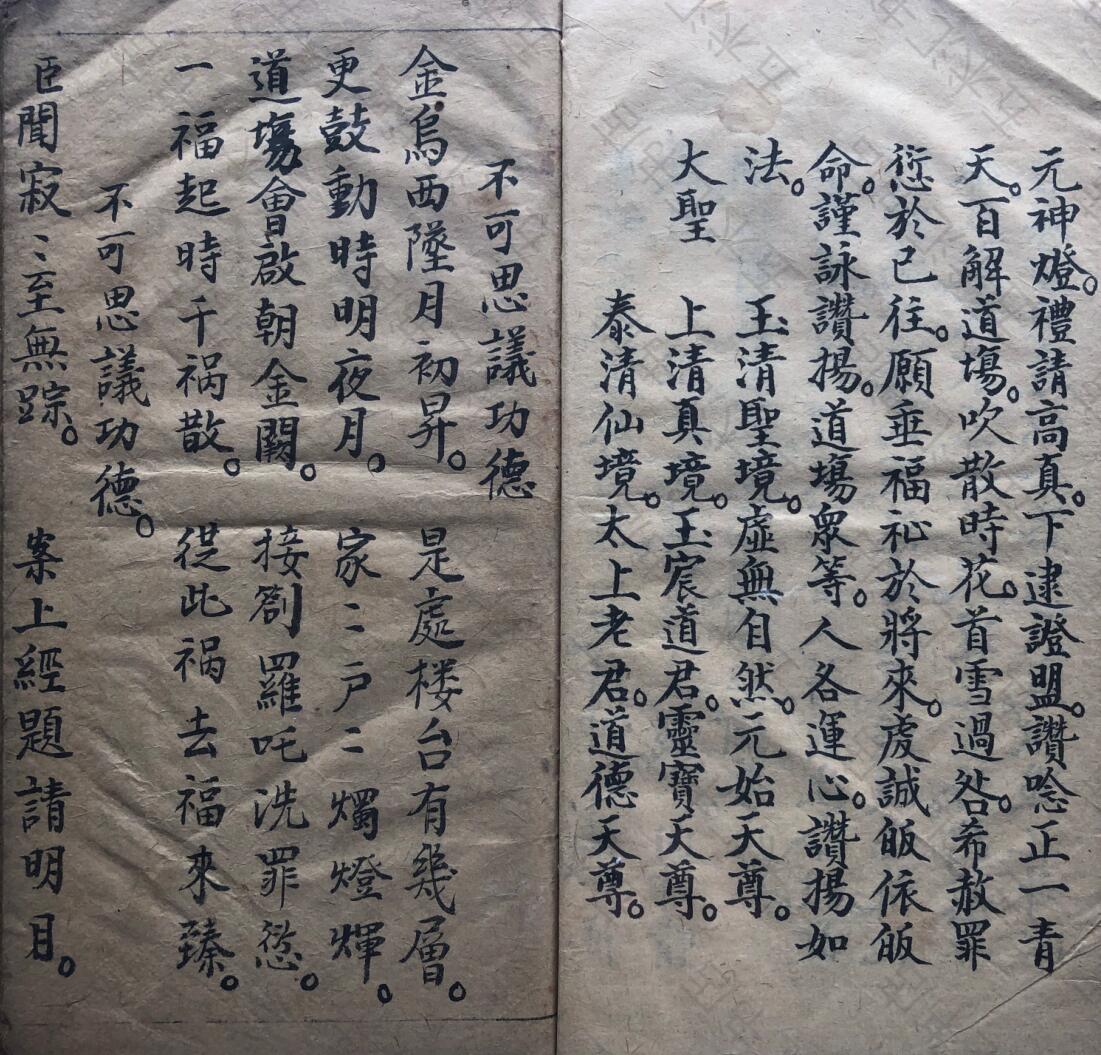 元神燈。禮請高真。下逮證盟。讚唸正一青
天。百解道塲。吹散時花。首雪過咎。希赦罪
愆於已往。願垂福祉於將來。虔誠皈依皈
命。謹詠讚揚。道塲眾等。人各運心。讚揚如
法。
玉清聖境。虛無自然。元始天尊。
大聖 上清真境。玉宸道君。靈寶天尊。
泰清仙境。太上老君。道德天尊。
不可思議功德
金烏西墜月初昇。 是處楼台有幾層。
更鼓動時明夜月。 家〻户〻燭燈輝。
道塲會啟朝金闕。 接劄羅吒洗罪愆。
一福起時千祸散。 從此祸去福來臻。
不可思議功德。
臣聞寂〻至無踪。 案上經題請明目。